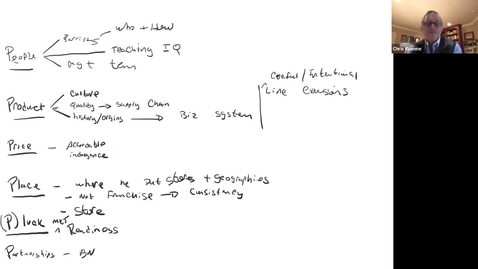 People
Barristas
who + How
teaching IQ
mgt team
Product
Culture
quality → Supply Chain
history/origins → Biz system
Careful/Intentional
Line extensions
Price - Affordable
indulgence
Place - where we put stores + geographies
- not Franchise → Consistency
- store
(P) luck
mkt
Readiness
Partnerships - BN
Chris Kuenne